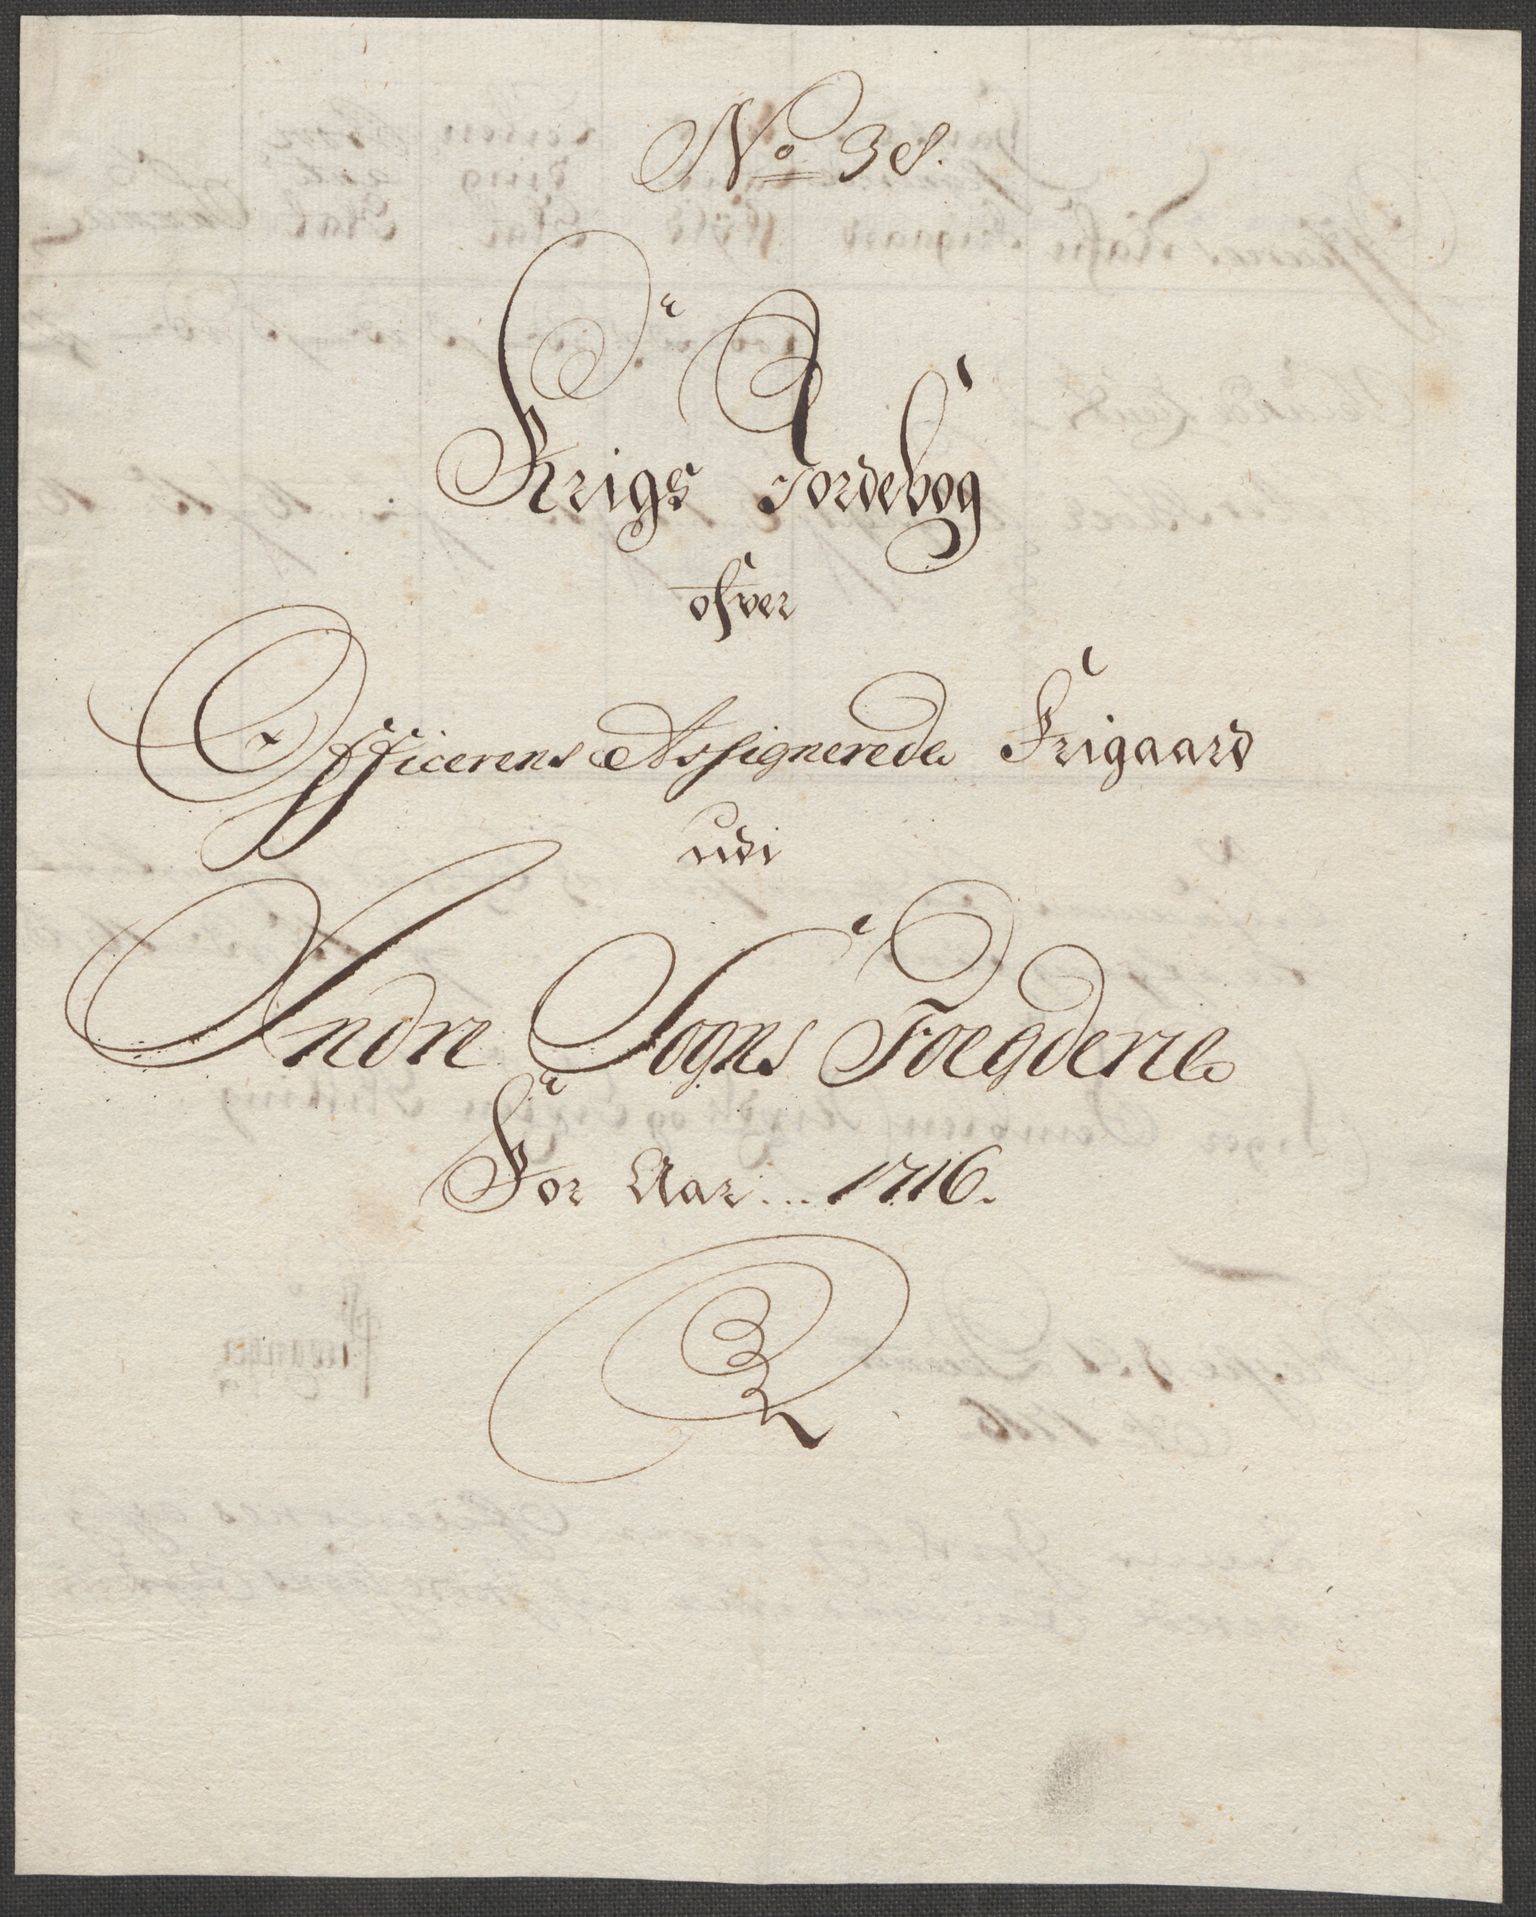 No 38.
Krigs Jordebog
ofver
Officerens Assignerede Frigaard
udi
Indre Sogns Foegderie
For Aar... 1716.